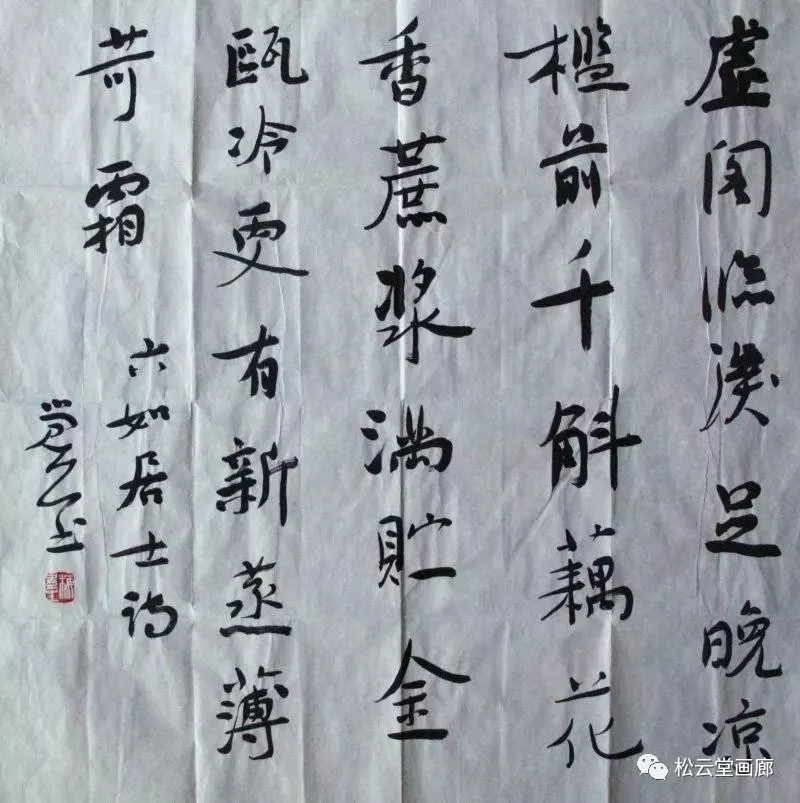 虚阁临溪足晚凉
槛前千斛藕花
香蔗浆满贮金
瓯冷更有新蒸薄
荷霜
六如居士诗
松云堂画廊